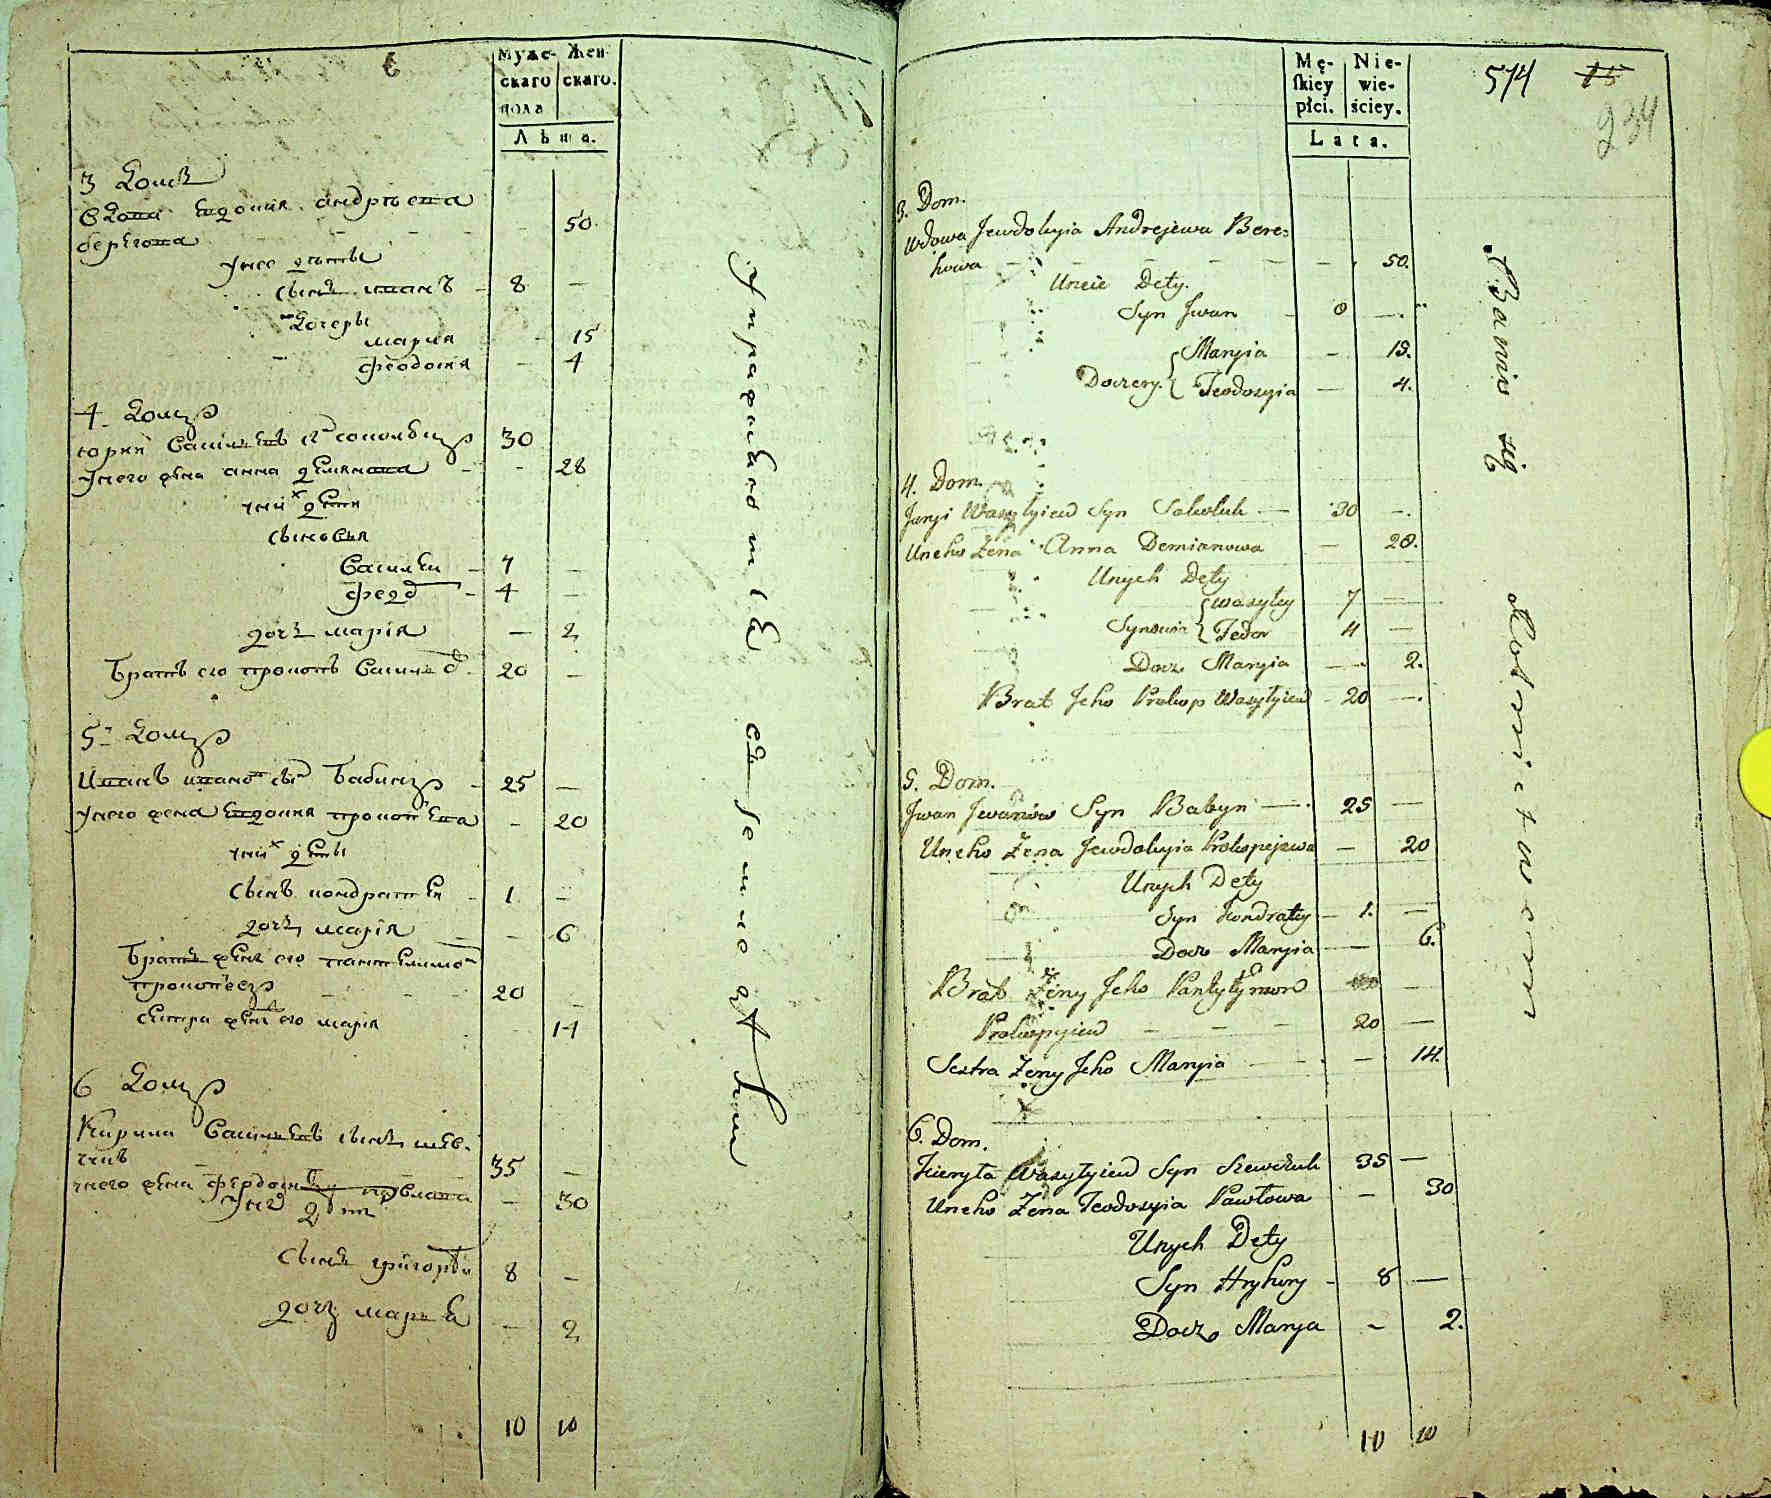 Муже-
скаго
пола
Жен-
скаго.
Лѣта.
3 Домъ
Вдова Евдокия Андрѣева
Берекова - 50
У нее дѣти
сынъ Иванъ - 8 -
дочеры
Мария - 15
Феодосия - 4
4 Домъ
30
У него жена Анна Демянова - 28
у них дети
сыновья
Василеи - 7 -
Федор - 4 -
дочь Марія - 2
Братъ его Прокопъ Василев - 20 -
5 Домъ
Иванъ Иванов сын Бабинъ - 25 -
У него жена Евдокия Прокопиева - 20
у них дети
сынъ Кондратеи - 1 -
дочь Марія - 6
Братъ жены его Пантелимон
Прокопиевъ - 20 -
сестра жены его Марія 14
6 Домъ
Кирила Василиевъ сынъ Шев-
чукъ 35 -
у него жена Феодосия Павлова - 30
У них дети
сынъ Григорѣи 8 -
дочь Мария - 2
10 10
Mę-
skiey
płci.
Nie-
wie-
ściey.
Lata.
574
15
234
3. Dom.
Wdowa Jewdokyia Andrejewa Bere=
kowa - 50.
Uneie Dety.
Syn Jwan - 8 -
Maryia - 15.
Doczery. Teodosyia - 4.
4. Dom.
Juryi Wasylyiew Syn Sokoluk - 30 -.
Uneho Żena Anna Demianowa - 28.
Unych Dety
Wasyley 7 -
Synowia Fedor 4 -
Docz Maryia - 2.
Brat Jeho Prokop Wasylyiew - 20 -.
5. Dom.
Jwan Jwanów Syn Babyn - 25 -
Uneho Żena Jewdokyia Prokopejewa - 20
Unych Dety
Syn Kondratey - 1. -
Docz Maryia - 6.
Brat Żeny Jeho Pantylymon
Prokopyiew - 20 -
Sestra Żeny Jeho Maryia - 14.
6. Dom.
Kieryła Wasylyiew Syn Szewczuk 35 -
Uneho Żena Teodosyia Pawłowa - 30
Unych Dety
Syn Hryhory - 8 -
Docz Marya - 2.
10 10